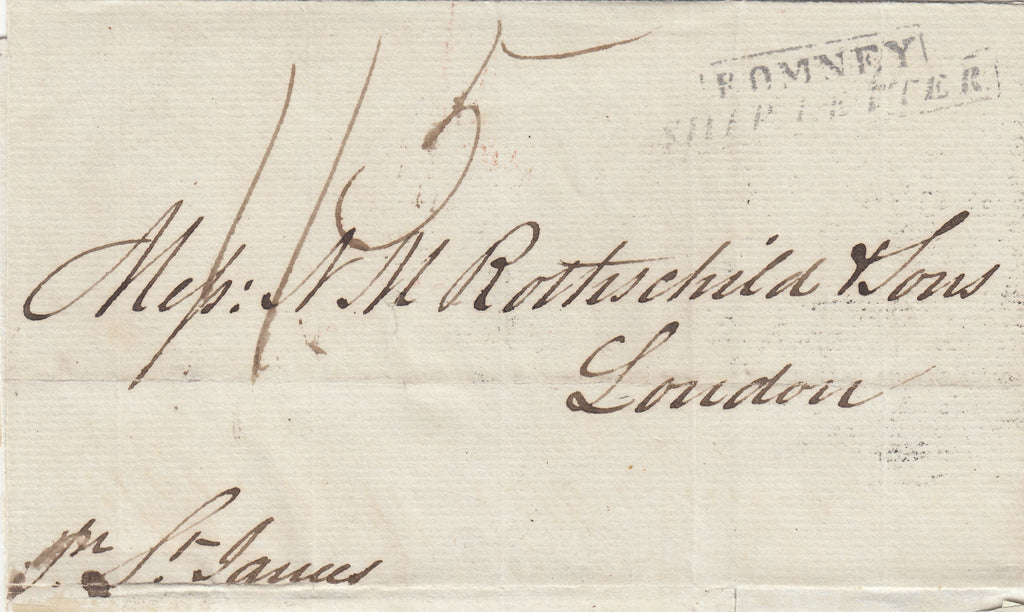 ROMNEY
SHIP LETTER
1/5
Mess: N M Rothschild & Sons
London
pr St. James